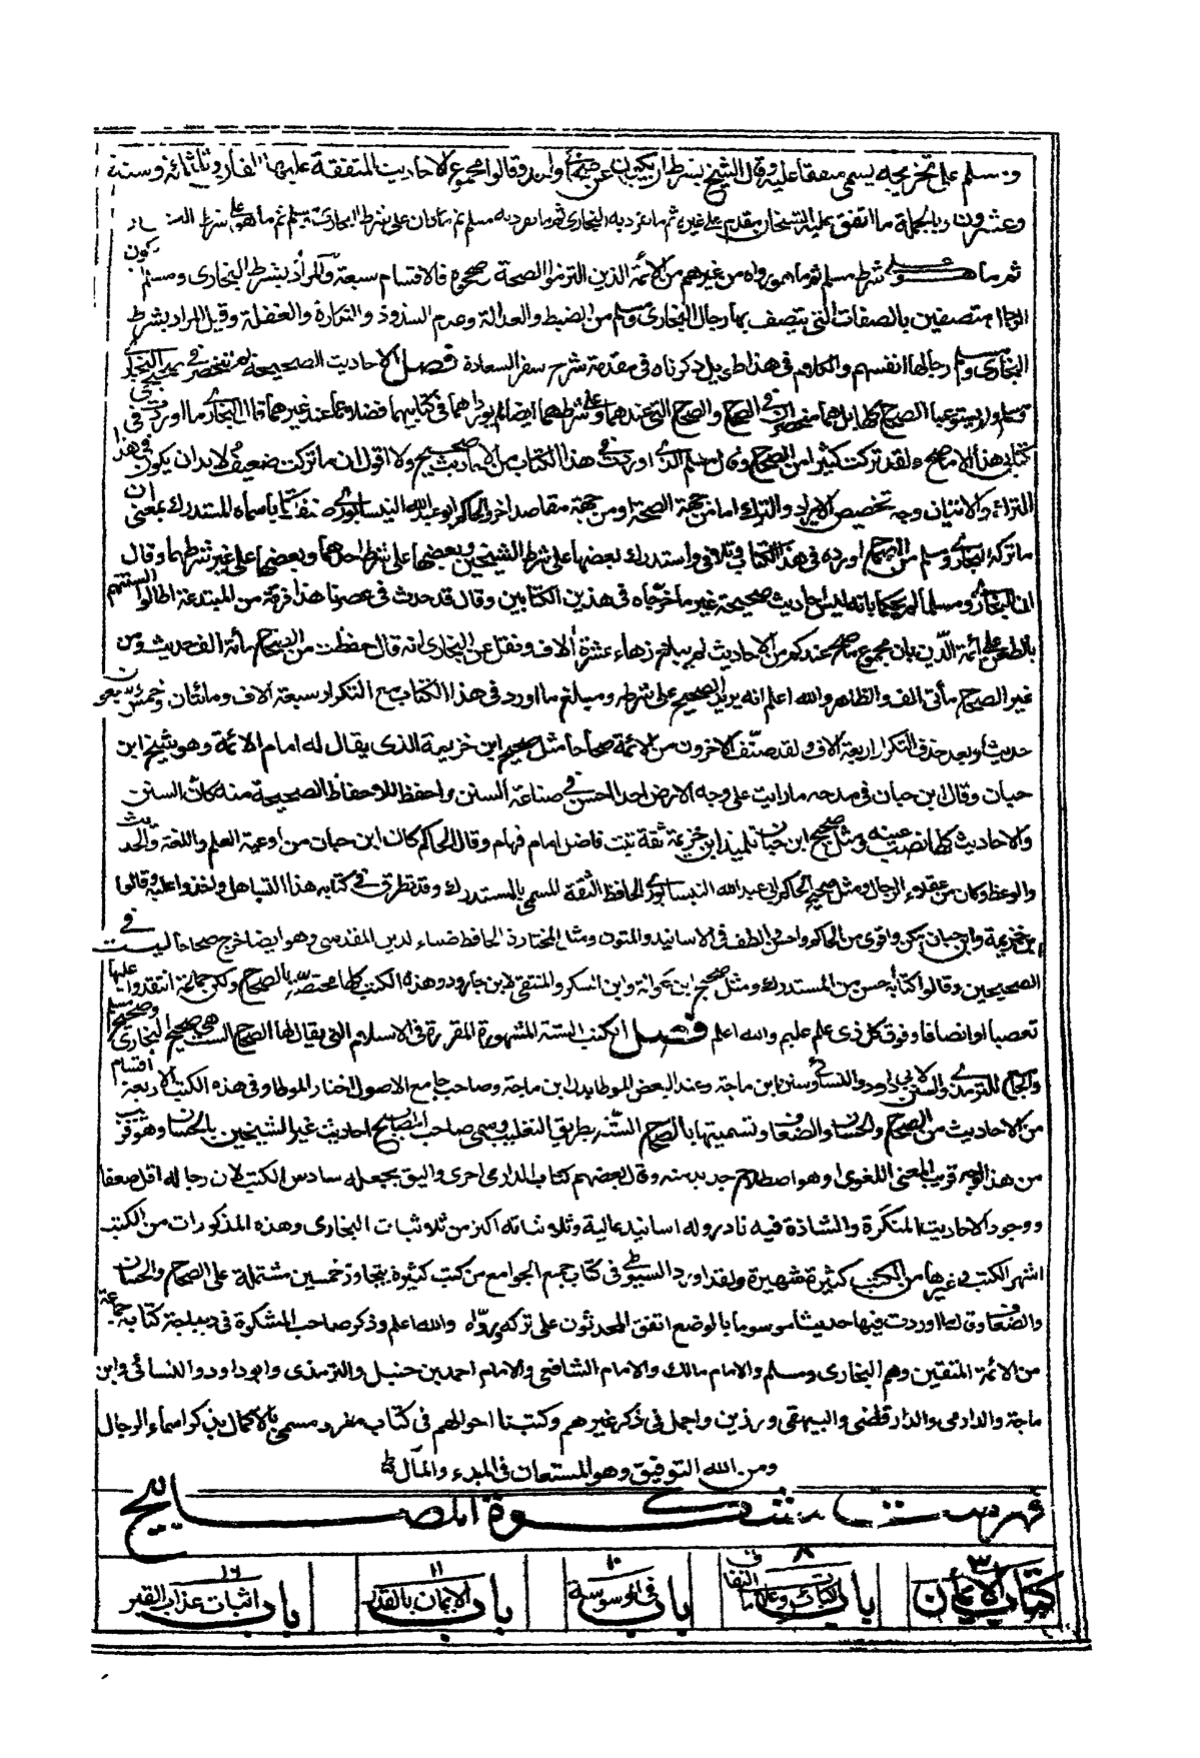 ومسلم على تخريجه يسمى متفقا عليه وقال الشيخ بشرط ان يكون عن صحابي واحد وقالوا مجموع الاحاديث المتفقة عليها الفان وثلثمائة وستة
وعشرون وبالجملة ما اتفق عليه الشيخان مقدم على غيره ثم ما تفرد به البخاري ثم ما تفرد به مسلم ثم ما كان على شرط البخاري ومسلم ثم ما هو على شرط البخاري
ثم ما هو على شرط مسلم ثم ما هو رواه من غيرهم من الائمة الذين التزموا الصحة وصححوه فالاقسام سبعة والمراد بشرط البخاري ومسلم ان يكون
الرجال متصفين بالصفات التي يتصف بها رجال البخاري ومسلم من الضبط والعدالة وعدم الشذوذ والنكارة والغفلة وقيل المراد بشرط
البخاري ومسلم رجالهما انفسهم والكلام في هذا طويل ذكرناه في مقدمة شرح سفر السعادة فصل الاحاديث الصحيحة لم تنحصر في صحيحي البخاري
ومسلم ولم يستوعبا الصحاح كلها بل هما منحصران في الصحاح والصحاح التي عندهما وعلى شرطهما ايضا لم يورداهما في كتابيهما فضلا عما عند غيرهما قال البخاري ما اوردت في
كتابي هذا الا ما صح ولقد تركت كثيرا من الصحاح وقال مسلم الذي اوردت في هذا الكتاب من الاحاديث صحيح ولا اقول ان ما تركت ضعيف ولا بد ان يكون في هذا
الترك والاتيان وجه تخصيص الايراد والترك اما من جهة الصحة او من جهة مقاصد اخر والحاكم ابو عبد الله النيسابوري صنف كتابا سماه المستدرك بمعنى ان
ما تركه البخاري ومسلم من الصحاح اورده في هذا الكتاب وتلافى واستدرك بعضها على شرط الشيخين وبعضها على شرط احدهما وبعضها على غير شرطهما وقال
ان البخاري ومسلما لم يحكما بانه ليس احاديث صحيحة غير ما خرجاه في هذين الكتابين وقال قد حدث في عصرنا هذا فرقة من المبتدعة اطالوا السنتهم
بالطعن على ائمة الدين بان مجموع ما صح عندكم من الاحاديث لم يبلغ زهاء عشرة الاف ونقل عن البخاري انه قال حفظت من الصحاح مائة الف حديث ومن
غير الصحاح مأتي الف والظاهر والله اعلم انه يريد الصحيح على شرطه ومبلغ ما اورد في هذا الكتاب مع التكرار سبعة الاف ومائتان وخمس وسبعون
حديثا وبعد حذف التكرار اربعة الاف ولقد صنف الاخرون من الائمة صحاحا مثل صحيح ابن خزيمة الذي يقال له امام الائمة وهو شيخ ابن
حبان وقال ابن حبان في مدحه ما رايت على وجه الارض احدا احسن في صناعة السنن واحفظ للالفاظ الصحيحة منه كان السنن
والاحاديث كلها نصب عينه ومثل صحيح ابن حبان تلميذ ابن خزيمة ثقة ثبت فاضل امام فهام وقال الحاكم كان ابن حبان من اوعية العلم واللغة والحديث
والوعظ وكان من عقلاء الرجال ومثل صحيح الحاكم ابي عبد الله النيسابوري الحافظ الثقة المسمى بالمستدرك وقد تطرق في كتابه هذا التساهل واخذوا عليه وقالوا
ابن خزيمة وابن حبان امكن واقوى من الحاكم واحسن والطف في الاسانيد والمتون ومثل المختارة للحافظ ضياء الدين المقدسي وهو ايضا خرج صحاحا ليست في
الصحيحين وقالوا كتابه احسن من المستدرك ومثل صحيح ابن عوانة وابن السكن والمنتقى لابن جارود وهذه الكتب كلها مختصة بالصحاح ولكن جماعة انتقدوا عليها
تعصبا او انصافا وفوق كل ذي علم عليم والله اعلم فصل الكتب الستة المشهورة المقررة في الاسلام التي يقال لها الصحاح الست هي صحيح البخاري وصحيح مسلم
والجامع للترمذي والسنن لابي داود والنسائي وسنن ابن ماجة وعند البعض الموطا بدل ابن ماجة وصاحب جامع الاصول اختار الموطا وفي هذه الكتب الاربعة اقسام
من الاحاديث من الصحاح والحسان والضعاف وتسميتها بالصحاح الستة بطريق التغليب وسمى صاحب المصابيح احاديث غير الشيخين بالحسان وهو قريب
من هذا الوجه قريب المعنى اللغوي او هو اصطلاح جديد منه وقال بعضهم كتاب الدارمي احرى واليق بجعله سادس الكتب لان رجاله اقل ضعفا
ووجود الاحاديث المنكرة والشاذة فيه نادر وله اسانيد عالية وثلاثياته اكثر من ثلاثيات البخاري وهذه المذكورات من الكتب
اشهر الكتب وغيرها من الكتب كثيرة شهيرة ولقد اورد السيوطي في كتاب جمع الجوامع من كتب كثيرة يتجاوز خمسين مشتملة على الصحاح والحسان
والضعاف وقال ما اوردت فيها حديثا موسوما بالوضع اتفق المحدثون على تركه ورده والله اعلم وذكر صاحب المشكوة في ديباجة كتابه جماعة
من الائمة المتقين وهم البخاري ومسلم والامام مالك والامام الشافعي والامام احمد بن حنبل والترمذي وابو داود والنسائي وابن
ماجة والدارمي والدارقطني والبيهقي ورزين واجمل في ذكر غيرهم وكتبنا احوالهم في كتاب مفرد مسمى بالاكمال بذكر اسماء الرجال
ومن الله التوفيق وهو المستعان في المبدء والمآل
فهرست مشكوة المصابيح
٣ كتاب الايمان
٨ باب الكبائر وعلامات النفاق
١٠ باب في الوسوسة
١١ باب الايمان بالقدر
١٦ باب اثبات عذاب القبر